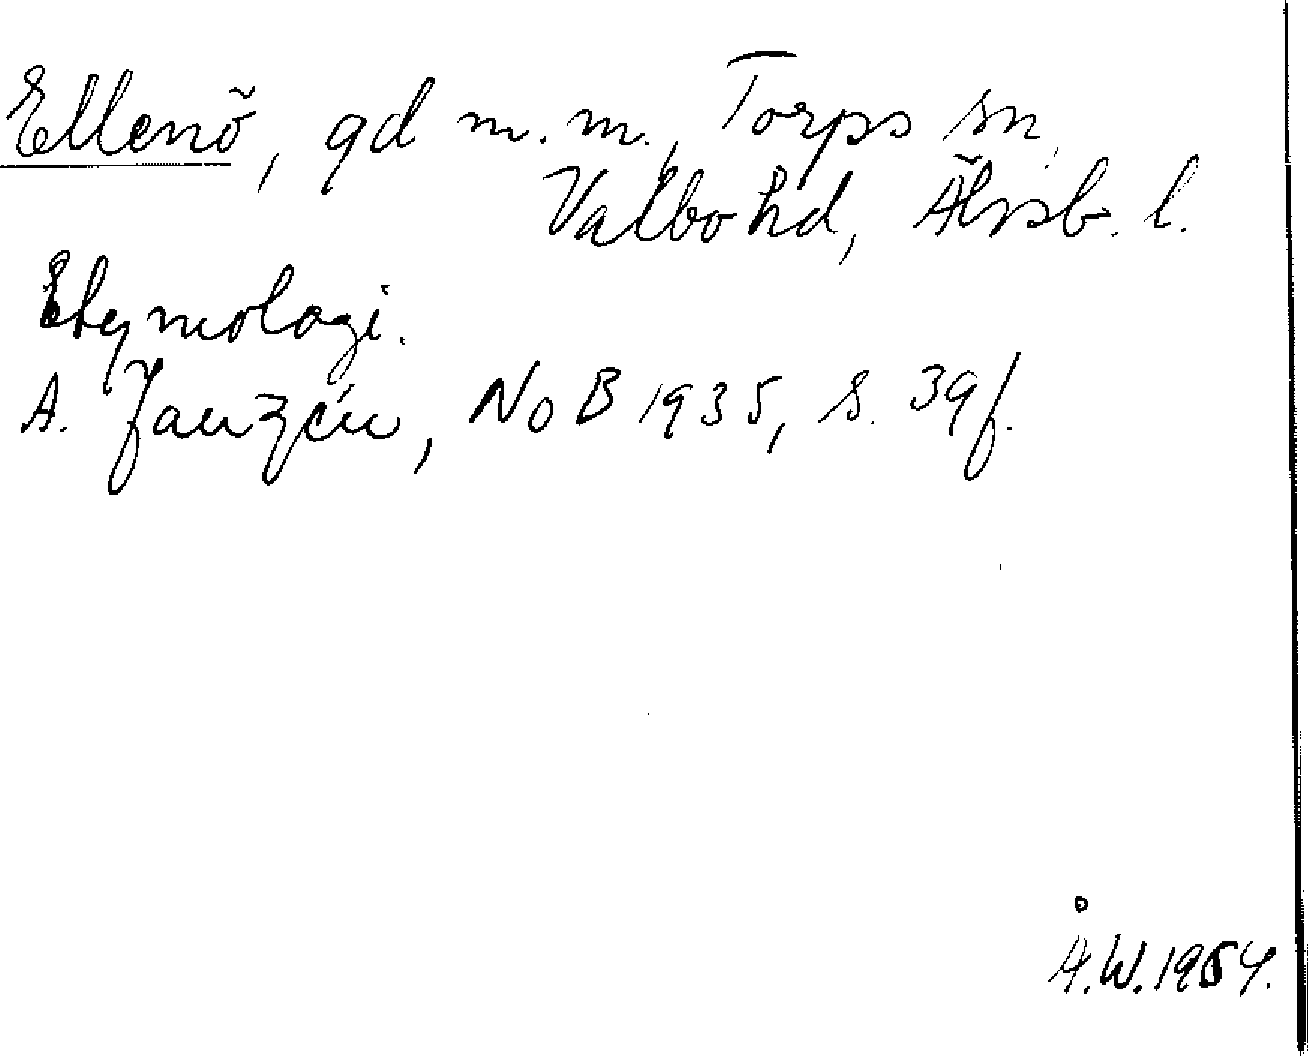 Ellenö, gd m.m., Torps sn,
Valbo hd, Älvsb. l.
Etymologi.
A. Janzén, NoB 1935, s. 39f.
Å.W.1954.